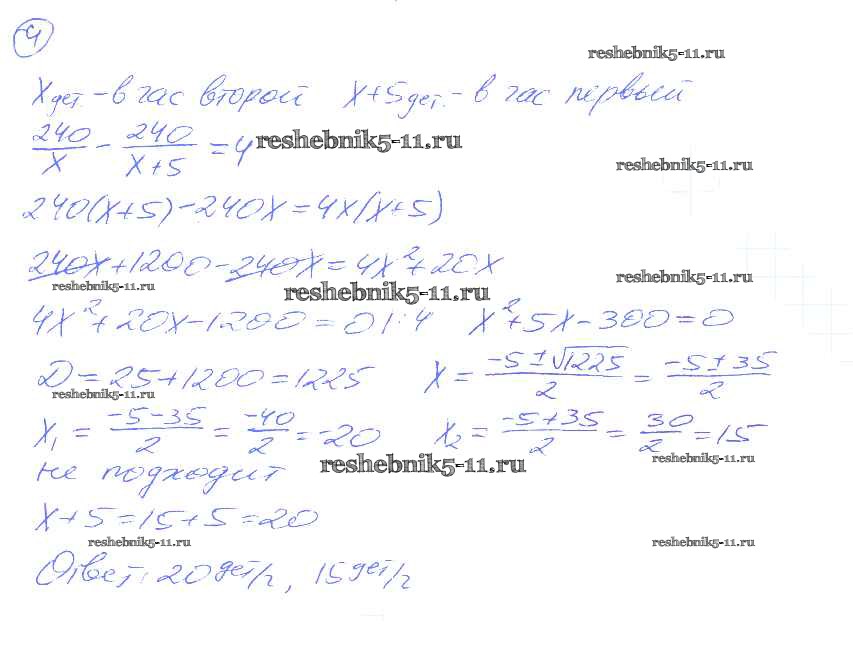 4
reshebnik5-11.ru
x дет. - в час второй x+5 дет. - в час первый
240/x - 240/(x+5) = 4 reshebnik5-11.ru
reshebnik5-11.ru
240(x+5)-240x=4x(x+5)
240x+1200-240x=4x²+20x
reshebnik5-11.ru reshebnik5-11.ru reshebnik5-11.ru
4x²+20x-1200=0 |:4 x²+5x-300=0
D=25+1200=1225 x = (-5±√1225)/2 = (-5±35)/2
reshebnik5-11.ru
x₁ = (-5-35)/2 = -40/2 = -20 x₂ = (-5+35)/2 = 30/2 = 15
не подходит reshebnik5-11.ru reshebnik5-11.ru
x+5=15+5=20
reshebnik5-11.ru reshebnik5-11.ru
Ответ: 20 дет/ч, 15 дет/ч